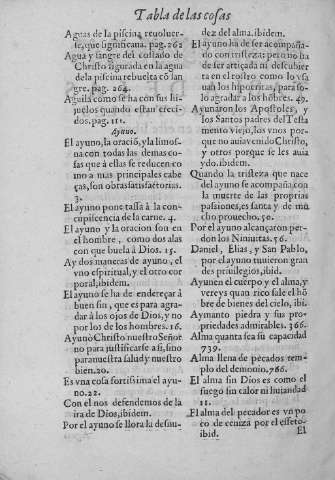 Tabla de las cosas
Aguas de la piscina reuoluer-
se, que significana. pag. 262
Agua y sangre del costado de
Christo figurada en la agua
de la piscina rebuelta cõ san
gre. pag. 264.
Aguila como se ha con sus hi-
juelos quando estan creci-
dos. pag. 111.
Ayuno.
El ayuno, la oració, y la limos-
na con todas las demas co-
sas que à ellas se reducen co
mo a mas principales cabe
ças, son obras satisfatorias.
3.
El ayuno pone tassa à la con-
cupiscencia de la carne. 4.
El ayuno y la oracion son en
el hombre, como dos alas
con que buela à Dios. 15.
Ay dos maneras de ayuno, el
vno espiritual, y el otro cor
poral, ibidem.
El ayuno se ha de endereçar à
buen sin, que es para agra-
dar à los ojos de Dios, y no
por los de los hombres. 16.
Ayunò Christo nuestro Señor
no para justificarse a si, sino
para nuestra salud y nuestro
bien. 20.
Es vna cosa fortissima el ayu-
no. 22.
Con el nos defendemos de la
ira de Dios, ibidem.
Por el ayuno se llora la desnu-
dez del alma. ibidem.
El ayuno ha de ser acompaña-
do con tristeza: pero no ha
de ser atiçada ni descubier
ta en el rostro como lo vsa
uan los hipocritas, para so-
lo agradar a los hõbres. 49.
Ayunaron los Apostoles, y
los Santos padres del Testa
mento viejo, los vnos por-
que no auia venido Christo,
y otros porque se les auia
ydo. ibidem.
Quando la tristeza que nace
del ayuno se acompaña con
la muerte de las proprias
passiones, es santa y de mu
cho prouecho. 50.
Por el ayuno alcançaron per-
don los Niniuitas. 56.
Daniel, Elias, y San Pablo,
por el ayuno tuuieron gran
des priuilegios, ibid.
Ayunen el cuerpo y el alma, y
vereys quan rico sale el hõ
bre de bienes del cielo, ibi.
Aymanto piedra y sus pro-
priedades admirables. 366.
Alma quanta sea su capacidad
739.
Alma llena de pecados tem-
plo del demonio. 766.
El alma sin Dios es como el
fuego sin calor ni humedad
11.
El alma del pecador es vn po
co de ceniza por el efeto
ibid.
El